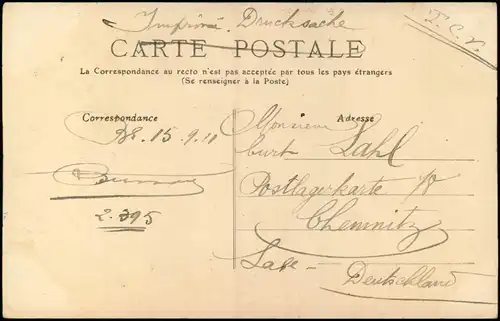 Imprimé. Drucksache
T.C.V.
CARTE POSTALE
La Correspondance au recto n'est pas acceptée par tous les pays étrangers
(Se renseigner à la Poste)
Correspondance
Adresse
15.9.11
Monsieur
Curt Zahl
Postlagerkarte
Chemnitz
Saxe-
Deutschland